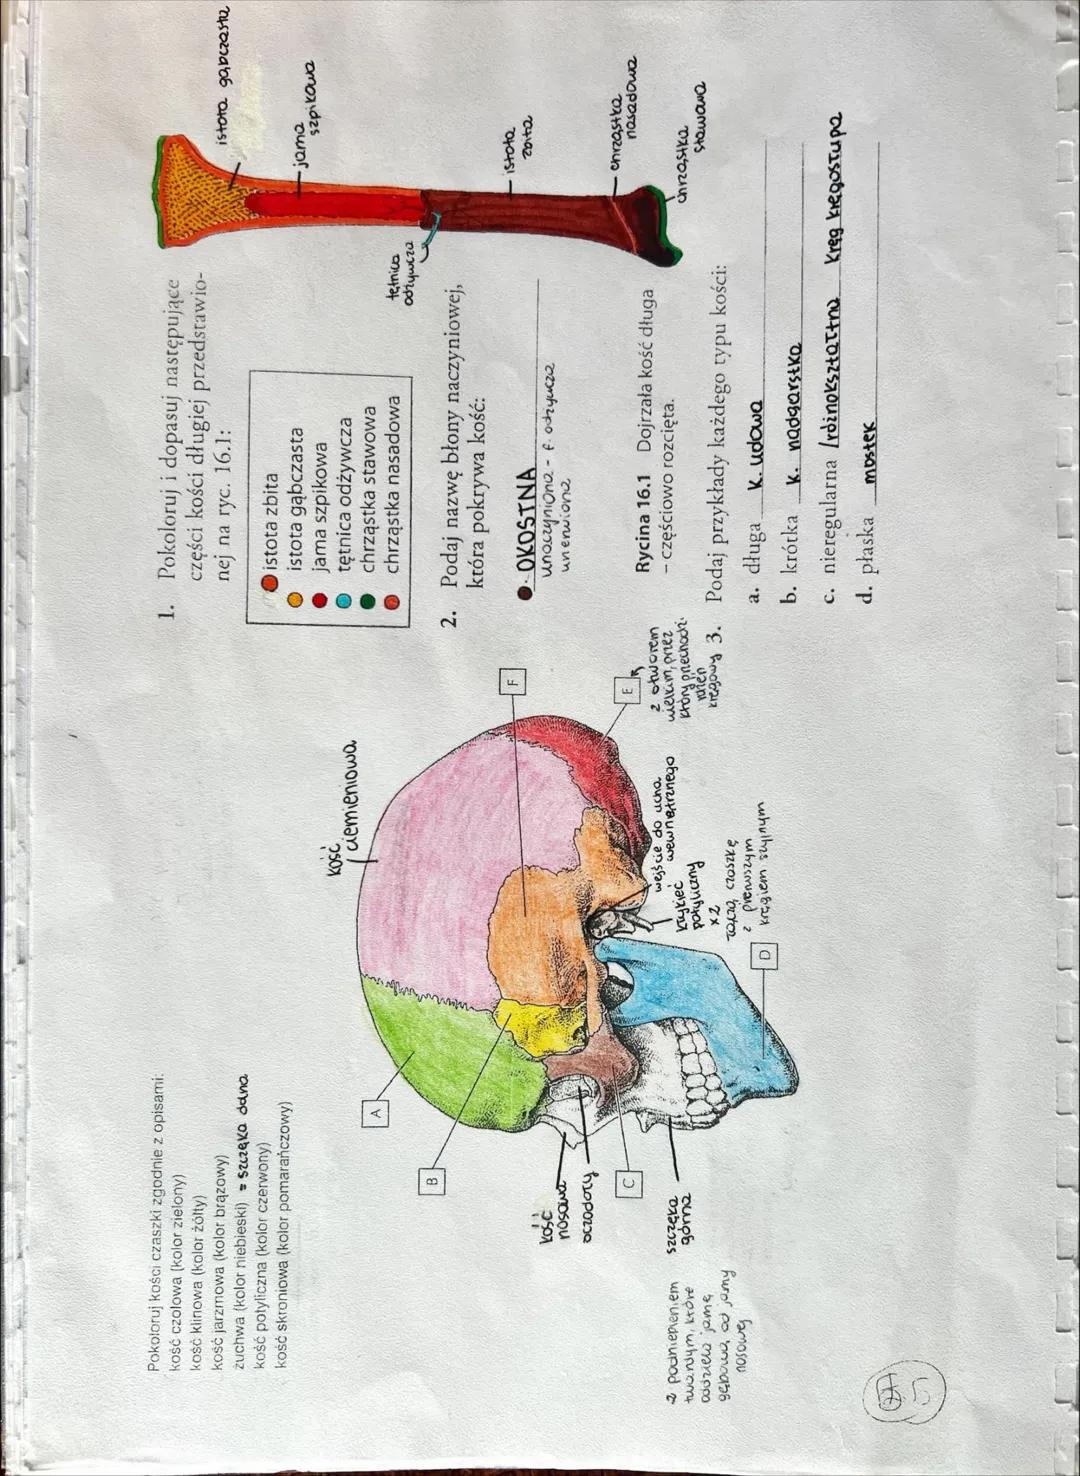 Pokoloruj kości czaszki zgodnie z opisami:
kość czołowa (kolor zielony)
kość klinowa (kolor żółty)
kość jarzmowa (kolor brązowy)
żuchwa (kolor niebieski) = szczęka dolna
kość potyliczna (kolor czerwony)
kość skroniowa (kolor pomarańczowy)
A
B
kość
nosowa
oczodoły
C
szczęka
górna
z podniebieniem
twardym, które
oddziela jamę
gębową od jamy
nosowej
kość
ciemieniowa
F
E
z otworem
wielkim, przez
który przechodzi
rdzeń
kręgowy
wejście do ucha
wewnętrznego
kłykieć
potyliczny
x2
łączą czaszkę
z pierwszym
kręgiem szyjnym
D
5
1. Pokoloruj i dopasuj następujące
części kości długiej przedstawio-
nej na ryc. 16.1:
istota zbita
istota gąbczasta
jama szpikowa
tętnica odżywcza
chrząstka stawowa
chrząstka nasadowa
istota gąbczasta
jama
szpikowa
tętnica
odżywcza
istota
zbita
chrząstka
nasadowa
chrząstka
stawowa
2. Podaj nazwę błony naczyniowej,
która pokrywa kość:
OKOSTNA
unaczyniona - f. odżywcza
unerwiona
Rycina 16.1 Dojrzała kość długa
– częściowo rozcięta.
3. Podaj przykłady każdego typu kości:
a. długa k. udowa
b. krótka k. nadgarstka
c. nieregularna /różnokształtna kręg kręgosłupa
d. płaska mostek